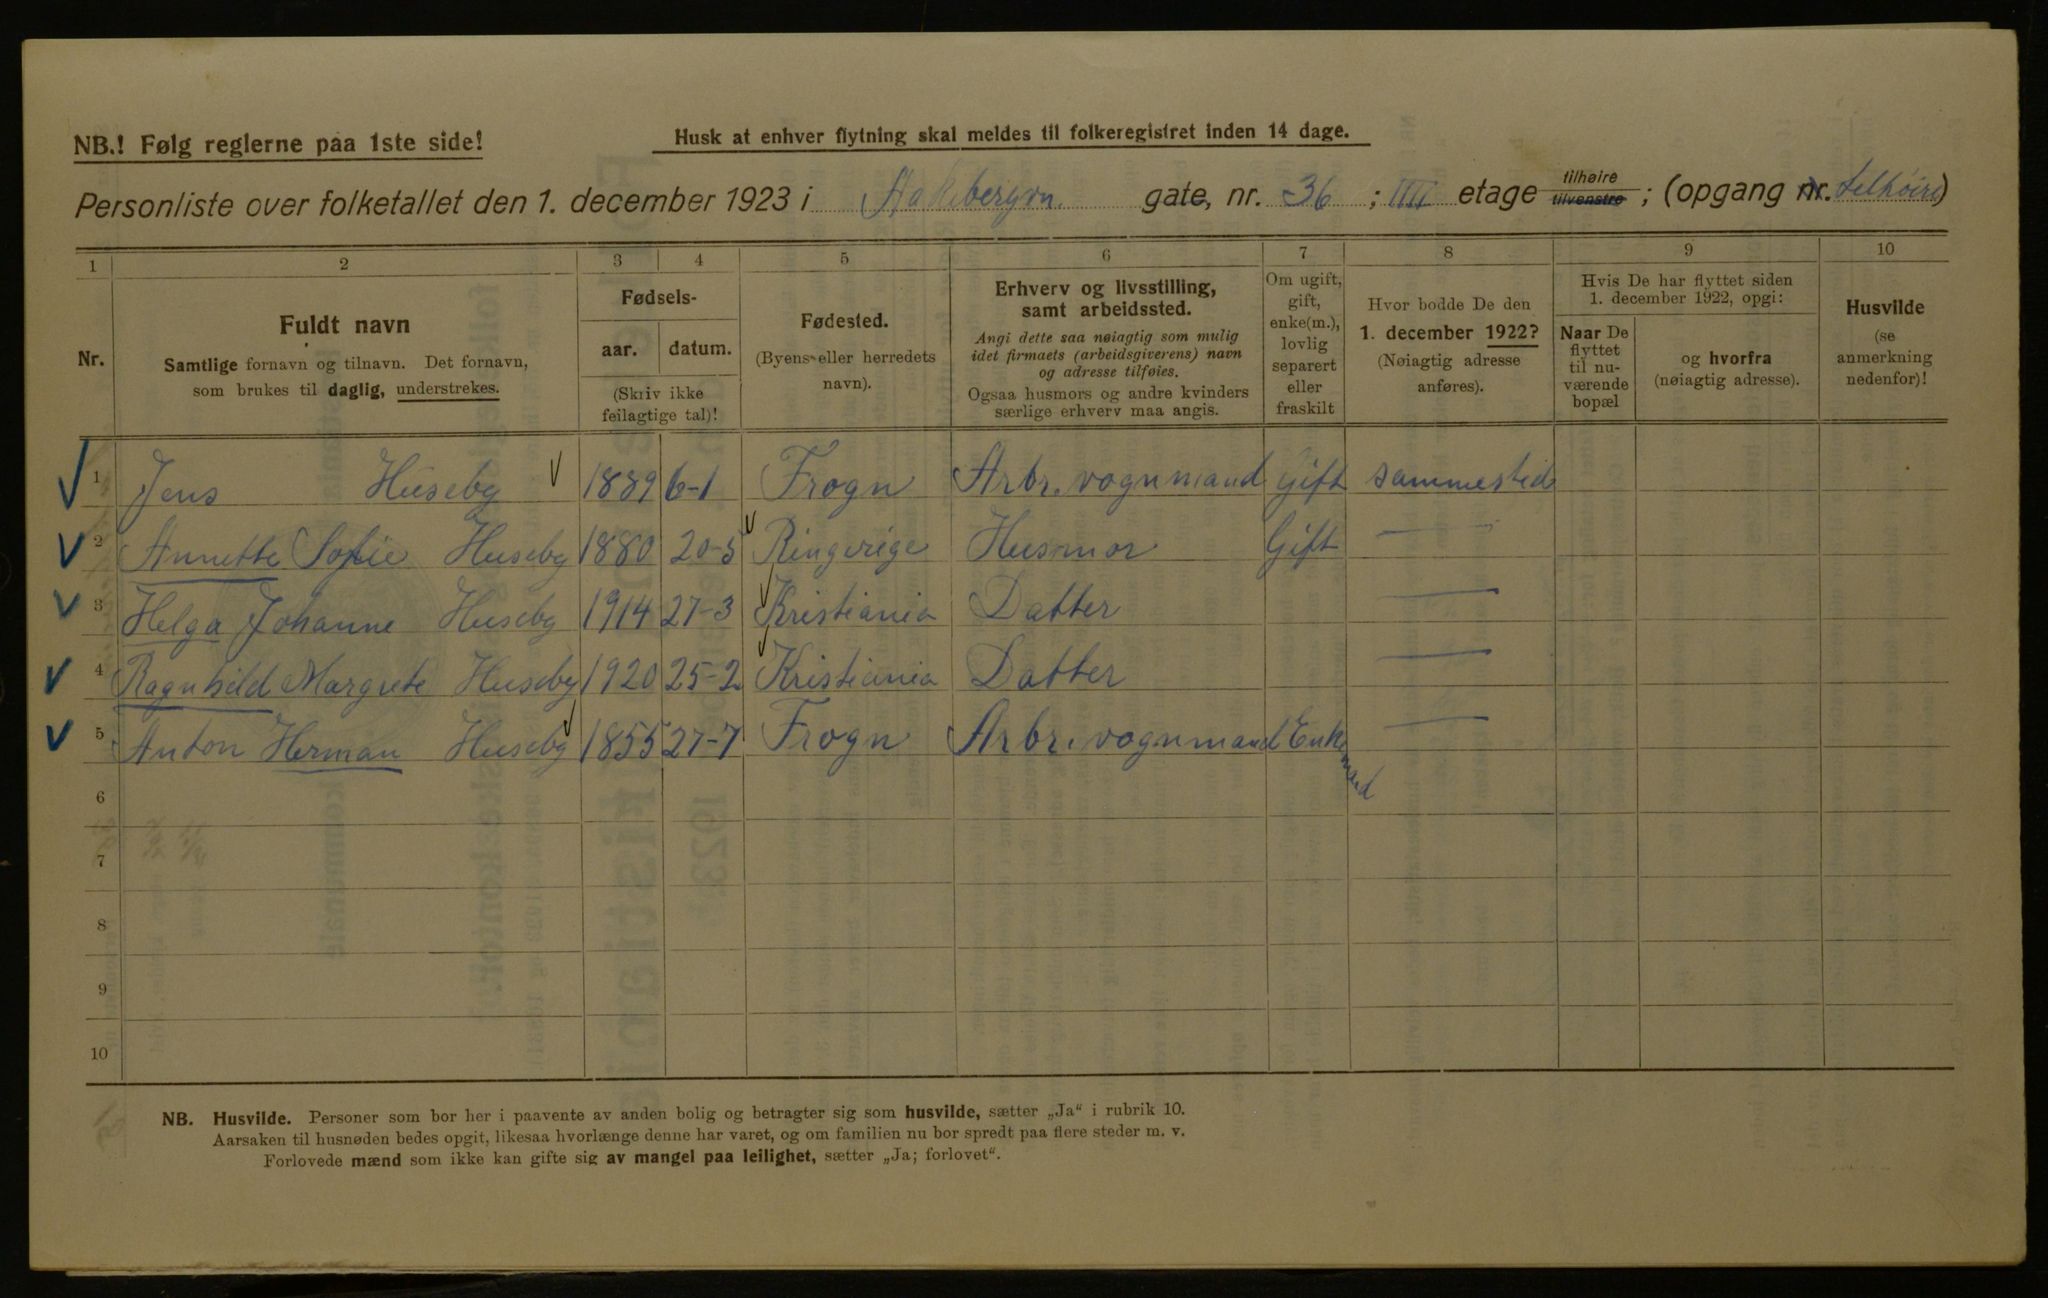 NB.! Følg reglerne paa 1ste side!
Husk at enhver flytning skal meldes til folkeregistret inden 14 dage.
Personliste over folketallet den 1. december 1923 i Aakebergvn. gate, nr. 36 ; IIII etage tilhøire tilvenstre ; (opgang nr. telhöire)
1 2 3 4 5 6 7 8 9 10
Nr.
Fuldt navn
Samtlige fornavn og tilnavn. Det fornavn,
som brukes til daglig, understrekes.
Fødsels-
aar. datum.
(Skriv ikke
feilagtige tal)!
Fødested.
(Byens eller herredets
navn).
Erhverv og livsstilling,
samt arbeidssted.
Angi dette saa nøiagtig som mulig
idet firmaets (arbeidsgiverens) navn
og adresse tilføies.
Ogsaa husmors og andre kvinders
særlige erhverv maa angis.
Om ugift,
gift,
enke(m.),
lovlig
separert
eller
fraskilt
Hvor bodde De den
1. december 1922?
(Nøiagtig adresse
anføres).
Hvis De har flyttet siden
1. december 1922, opgi:
Naar De
flyttet
til nu-
værende
bopæl
og hvorfra
(nøiagtig adresse).
Husvilde
(se
anmerkning
nedenfor)!
1 Jens Huseby 1889 6-1 Frogn Arbr. vognmand Gift sammested
2 Annette Sofie Huseby 1880 20-5 Ringerige Husmor Gift —
3 Helga Johanne Huseby 1914 27-3 Kristiania Datter —
4 Ragnhild Margrete Huseby 1920 25-2 Kristiania Datter —
5 Anton Herman Huseby 1855 27-7 Frogn Arbr. vognmand Enkemand —
6
7
8
9
10
NB. Husvilde. Personer som bor her i paavente av anden bolig og betragter sig som husvilde, sætter „Ja“ i rubrik 10.
Aarsaken til husnøden bedes opgit, likesaa hvorlænge denne har varet, og om familien nu bor spredt paa flere steder m. v.
Forlovede mænd som ikke kan gifte sig av mangel paa leilighet, sætter „Ja; forlovet“.